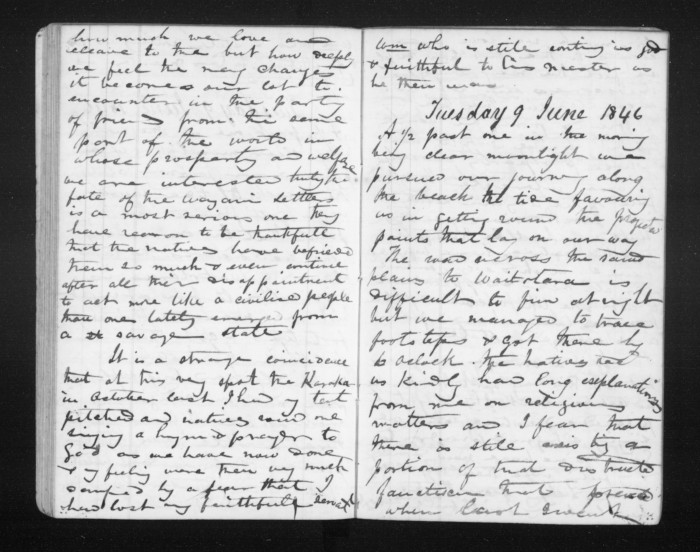 how much we love and
receive to the but how deeply
we feel the many changes
it becomes our lot to
encounter in the party
of friends from this same
part of the world in
whose prosperity and welfare
we are interested truly the
fate of the settlers
is a most serious one they
have reason to be thankfull
that the natives have befriended
them so much & even continue
after all their disappointment
to act more like a civilised people
than one lately emerged from
a savage state
It is a strange coincidence
that at this very spot the Karaka
in October last I had my tent
pitched and natives round me
singing a hymn & prayer to
God as we have now done
& my feeling were then very much
damped by a fear that I
had lost my faithfull servant
Wm who is still conting us good
& faithful to his master as
he then was
Tuesday 9 June 1846
At 1/2 past one in the morng
being clear moonlight we
pursued our journey along
the beach the tide favouring
us in getting round the
points that lay on our way
The road across the sand
plains to Waitotara is
difficult to find at night
but we managed to trace
footsteps & got there by
6 oclock. The Natives rec
us kindly had long explanations
from me on religious
matters and I fear that
there is still exis ting a
portion of that
that
when last